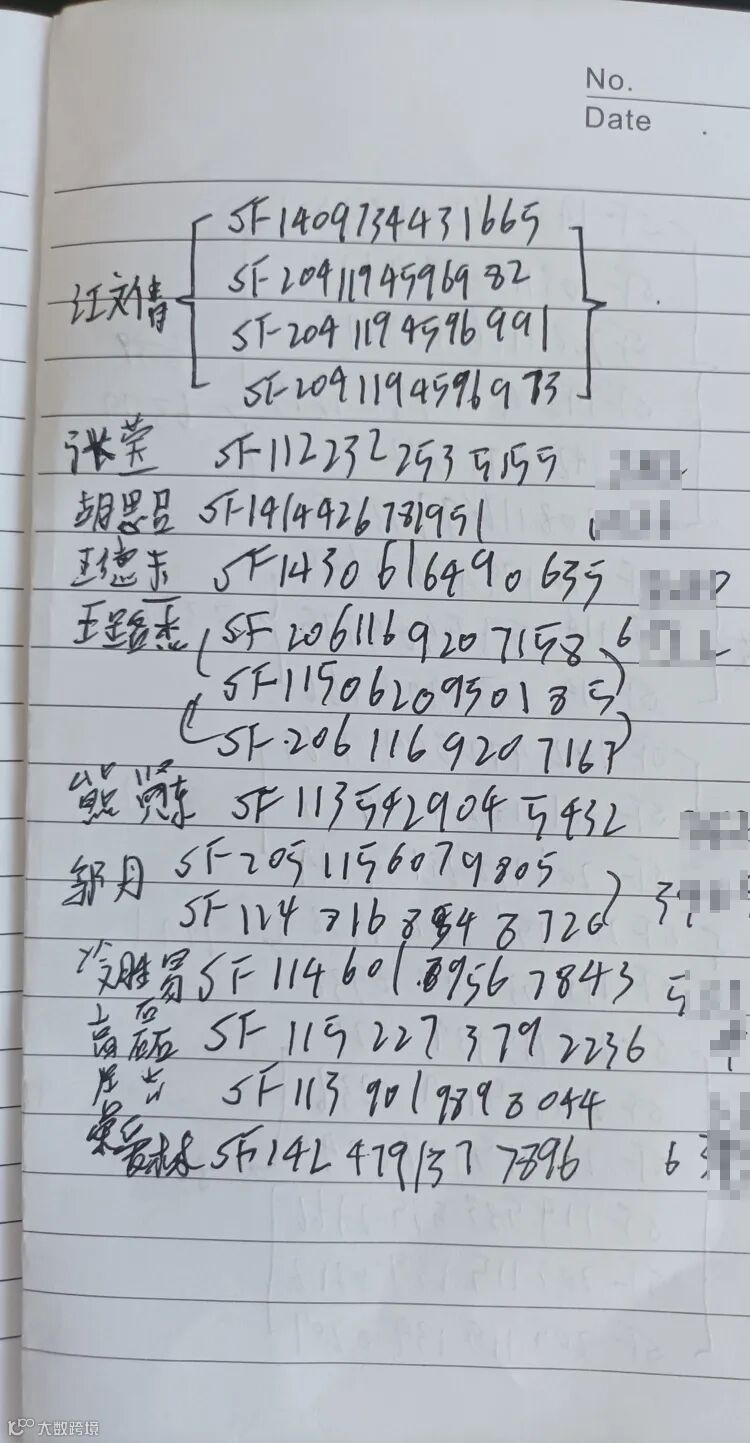 No.
Date
SF1409734431665
汪文倩 SF2041194596982
SF2041194596991
SF2041194596973
张莹 SF1122322535155
胡思吕 SF1414426781951
王德东 SF1430616490635
王路杰 SF2061169207158 6
SF1150620950185
SF2061169207167
熊 SF1135429045432
郭月 SF2051156079805
SF1148168548726 39
冷胜勇 SF11460139567843 5
高磊 SF1152273792236
SF1139019898044
SF1424791377896 63
大数跨境